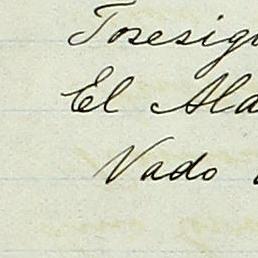 Tosesigu
El Ala
Vado